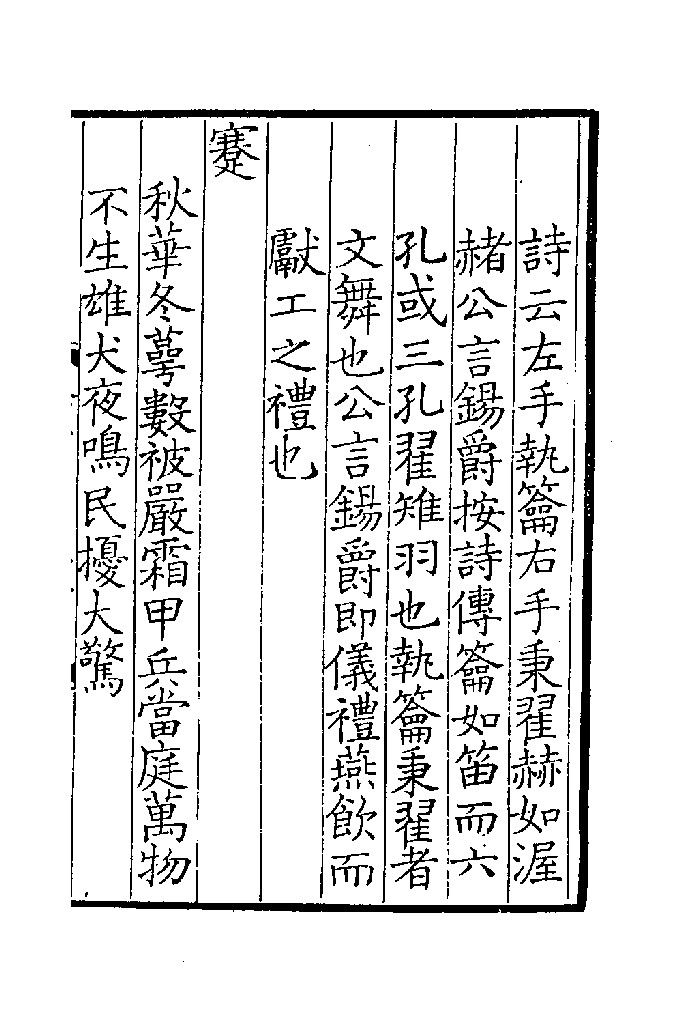 詩云左手執籥右手秉翟赫如渥
赭公言錫爵按詩傳籥如笛而六
孔或三孔翟雉羽也執籥秉翟者
文舞也公言錫爵即儀禮燕飲而
獻工之禮也
蹇
秋華冬蕚數被嚴霜甲兵當庭萬物
不生雄犬夜鳴民擾大驚